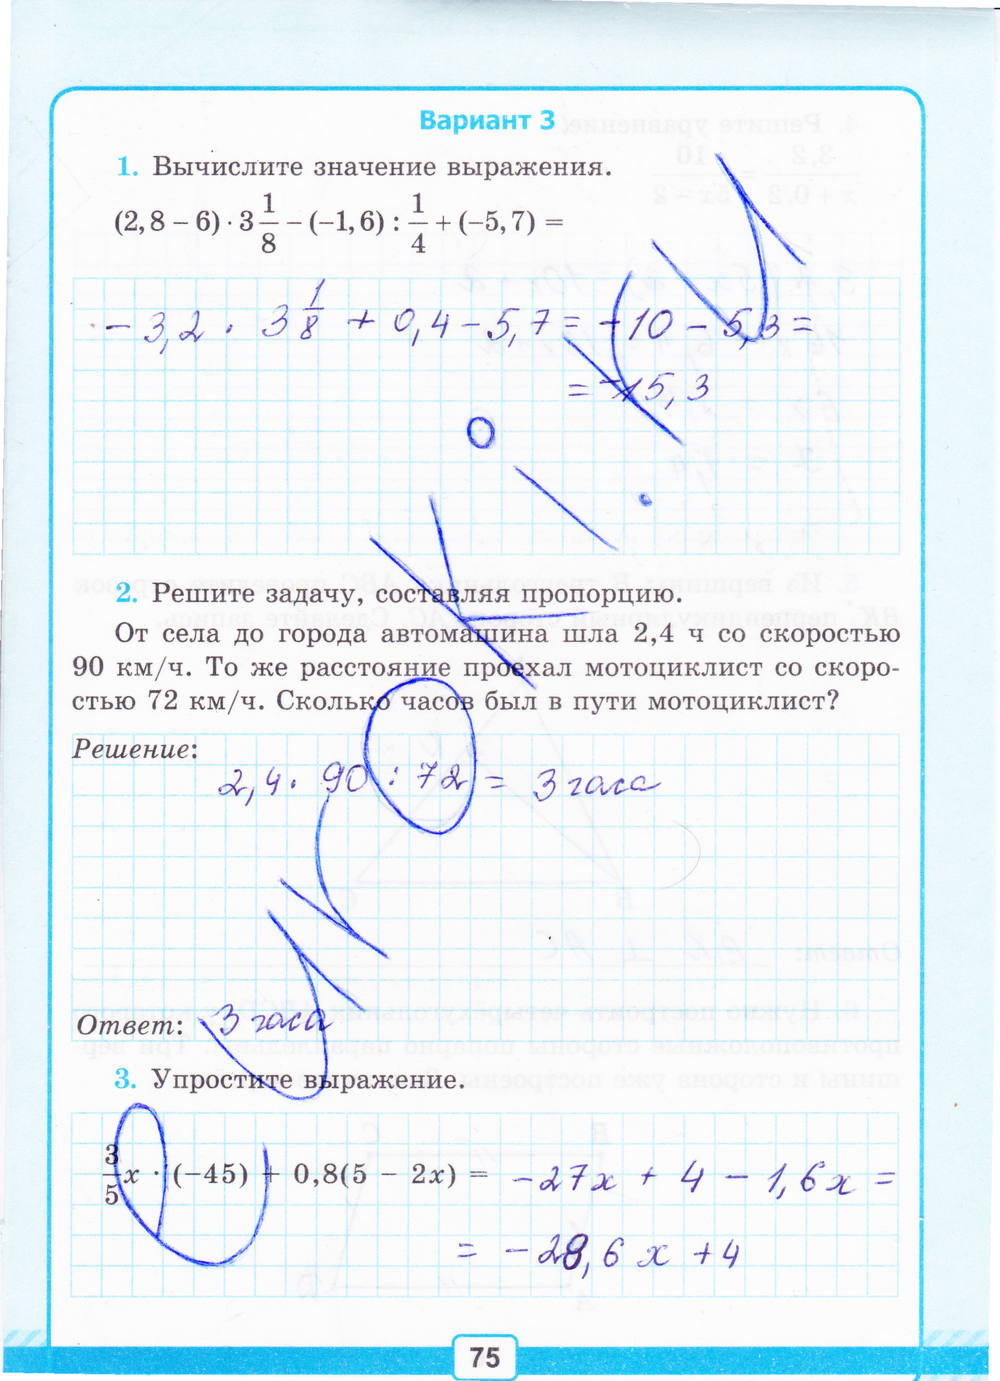 Вариант 3
1. Вычислите значение выражения.
(2,8 – 6) · 3 1/8 – (–1,6) : 1/4 + (–5,7) =
– 3,2 · 3 1/8 + 0,4 – 5,7 = –10 – 5,3 =
= –15,3
2. Решите задачу, составляя пропорцию.
От села до города автомашина шла 2,4 ч со скоростью
90 км/ч. То же расстояние проехал мотоциклист со скоро-
стью 72 км/ч. Сколько часов был в пути мотоциклист?
Решение:
2,4 · 90 : 72 = 3 часа
Ответ: 3 часа
3. Упростите выражение.
3/5 x · (–45) + 0,8(5 – 2x) = –27x + 4 – 1,6x =
= –28,6x + 4
75